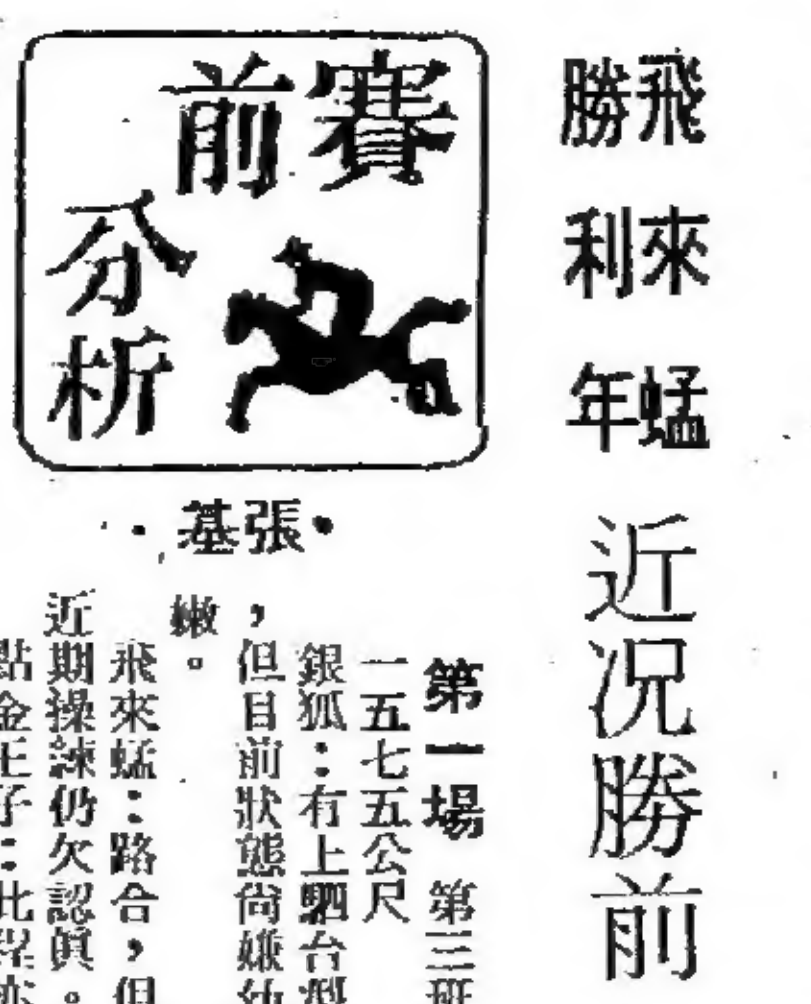 飛來蜢
勝利年
近況勝前
賽前
分析
·張基·
第一場 第三班
一五七五公尺
銀狐：有上駟台型
，但目前狀態尚嫌幼
嫩。
飛來蜢：路合，但
近期操諫仍欠認眞。
點金王子：此程亦